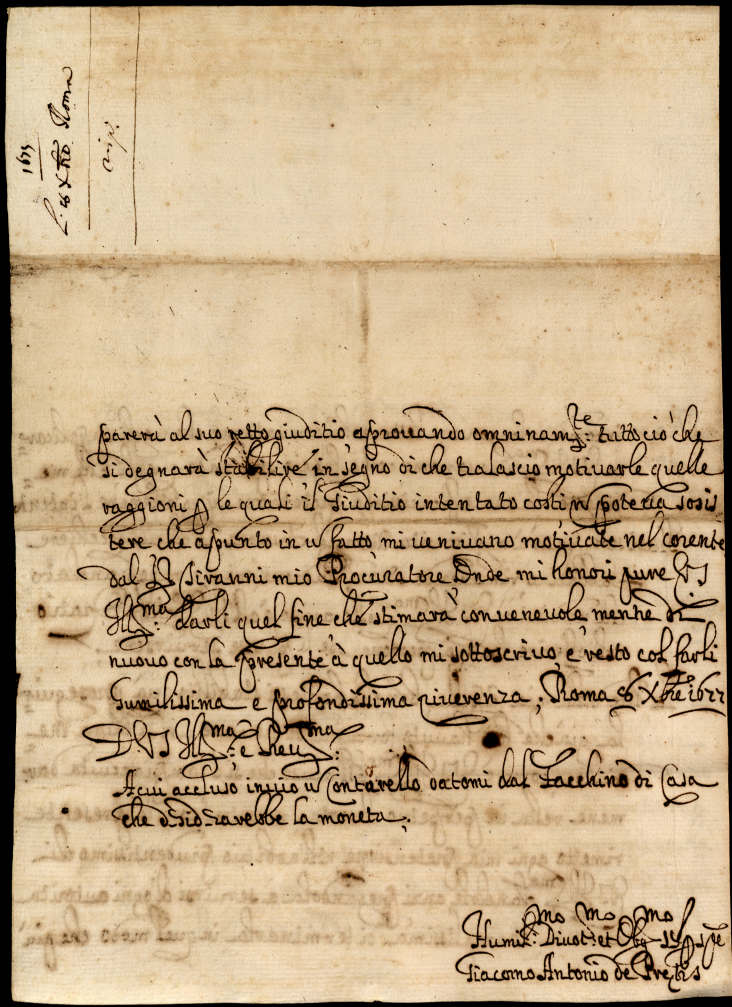 1677
L. 26 Xbre Roma
parerà al suo retto giuditio aprouando omninam.te tutto ciò che
si degnarà stabilire in segno di che tralascio motiuarle quelle
raggioni p le quali il Giuditio intentato costi n poteua sosis
tere che apunto in fatto mi ueniuano motiuate nel corente
dal Siuanni mio Procuratore Onde mi honori pure VS
Ill.ma darli quel fine che stimarà conuenevole mentre di
nuouo con la presente à quello mi sottoscriuo e resto col farli
humilissima e profondissima riuerenza, Roma 26 Xbre 1677
D VS Ill.ma e Reu.ma
Acui accluso inuio Contarello datomi dal Facchino di Casa
che desidrarebbe la moneta,
Humil.mo Diuot.mo et Obg.mo
Giacomo Antonio de Pretis